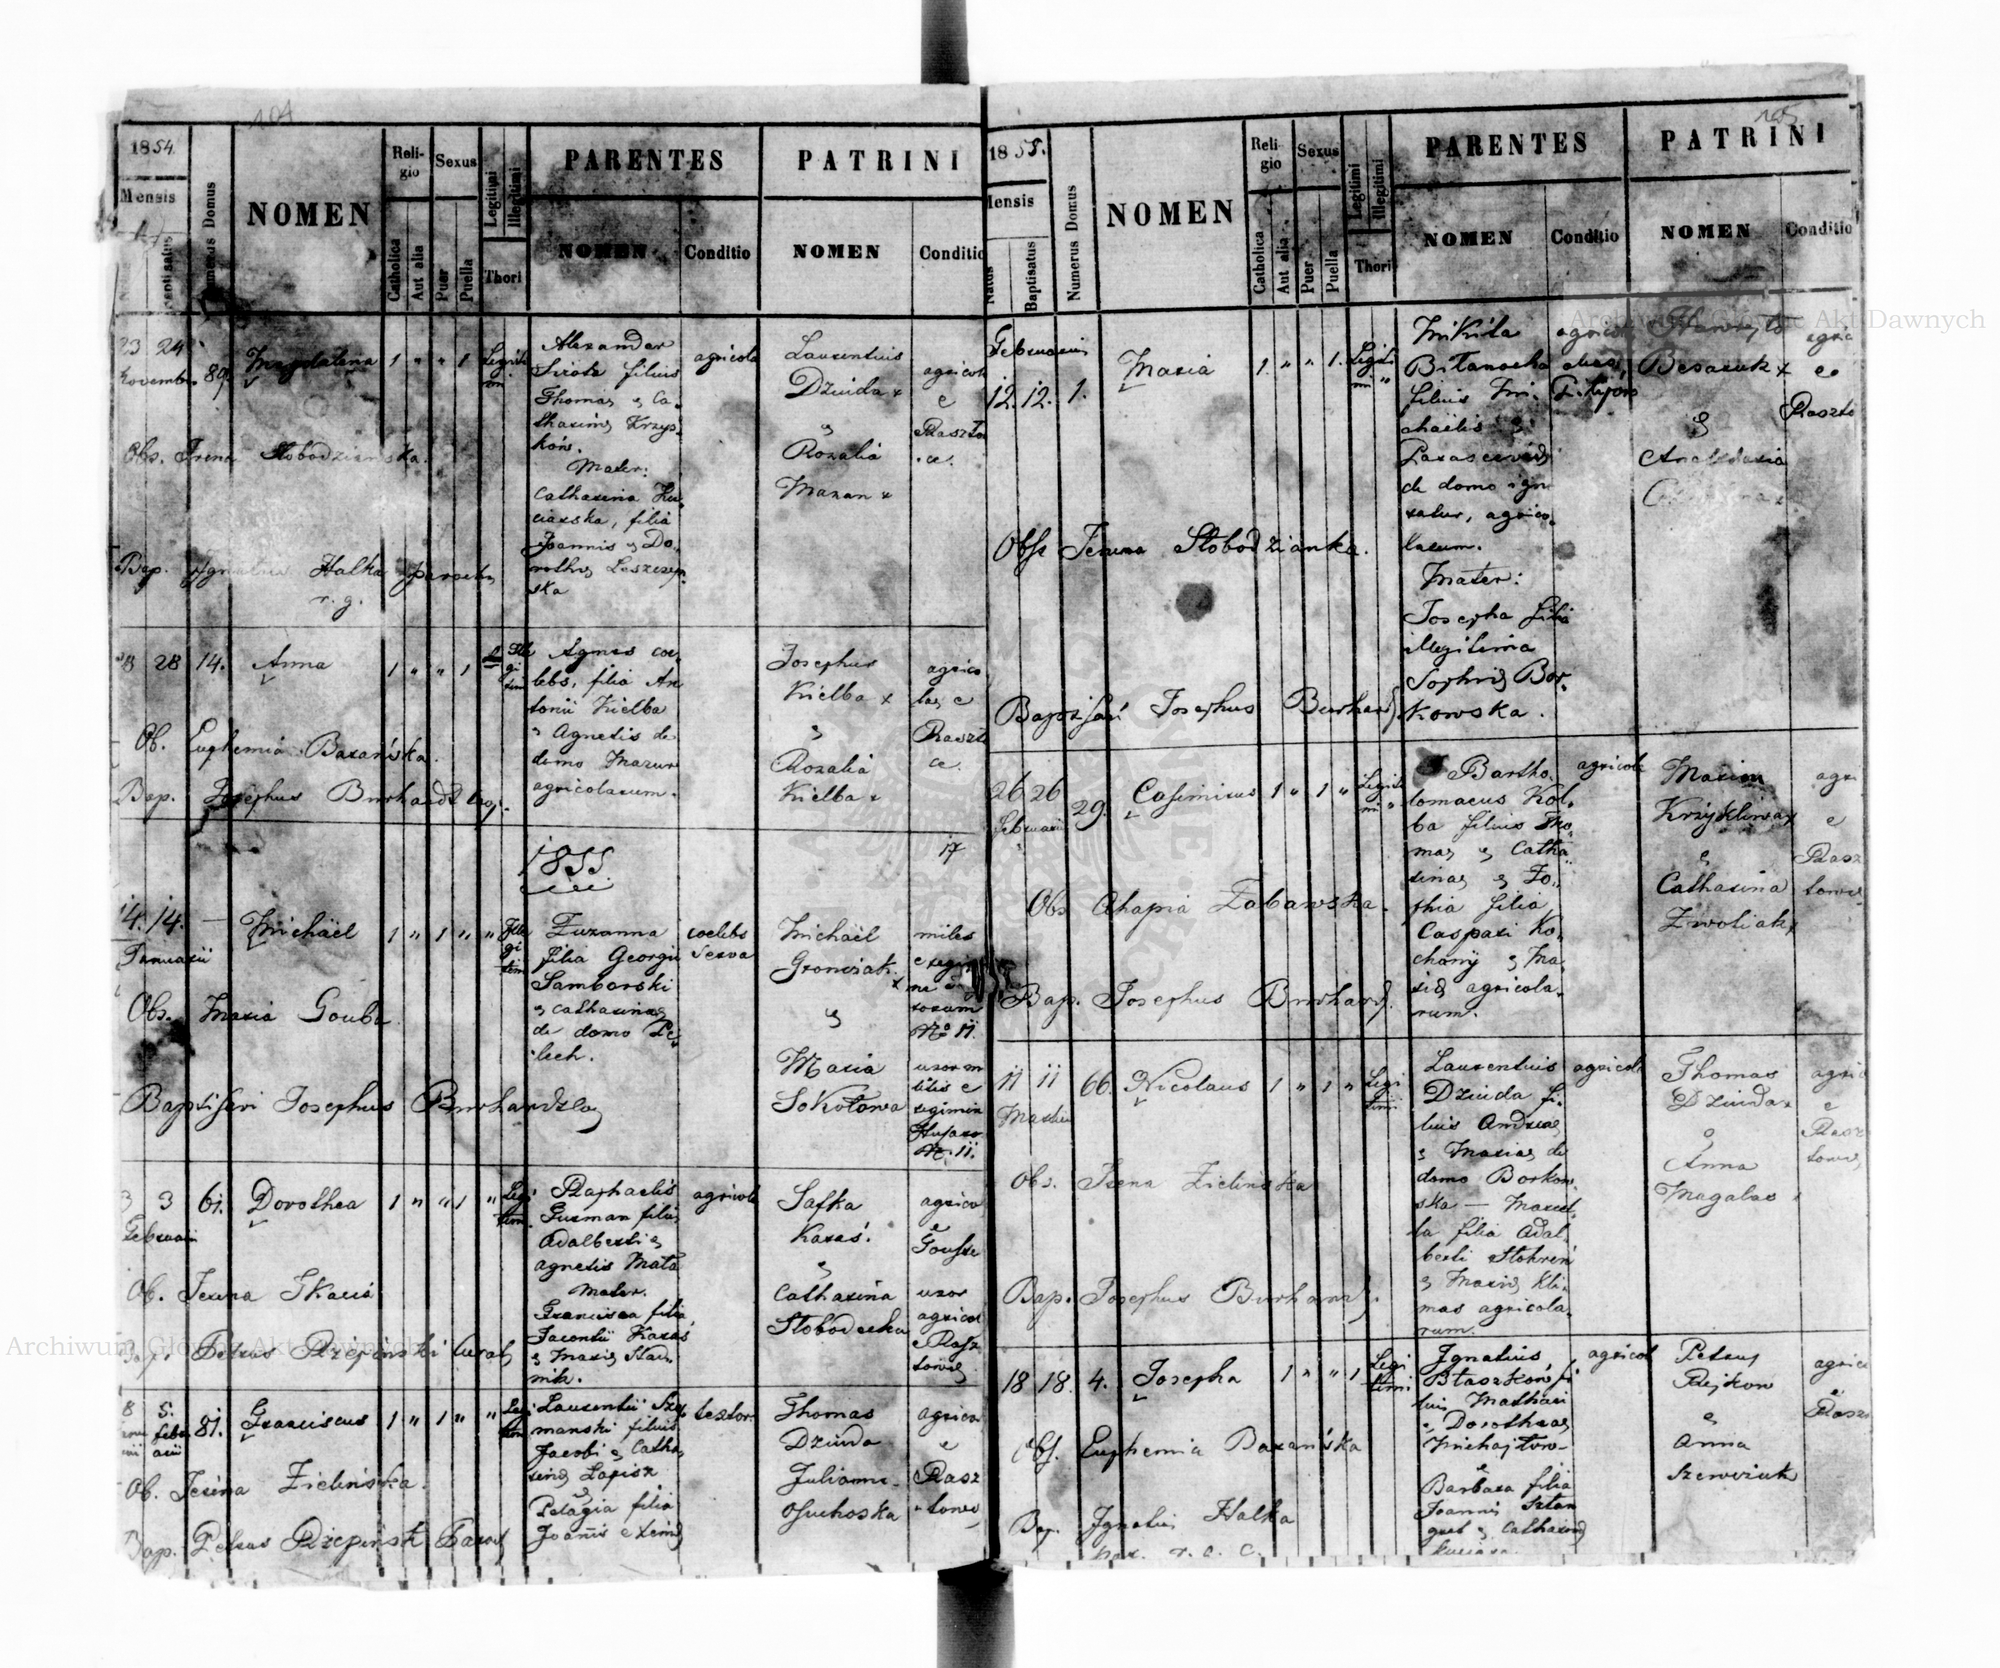 104
1854
Mensis
Baptisatus
Numerus Domus
NOMEN
Religio
Catholica
Aut alia
Sexus
Puer
Puella
Legitimi
Illegitimi
Thori
PARENTES
NOMEN
Conditio
PATRINI
NOMEN
Conditio
23 24
Novembris
89.
Magdalena
1 " " 1
Legiti
mi
Alexander
Sirota filius
Thomae & Ca-
tharinae Krzys-
ków.
Mater:
Catharina Ku-
ciarska, filia
Joannis & Do-
rotheae Leszczyń-
ska
agricola
Laurentius
Dziuda x
&
Rozalia
Mazan x
agricola
e
Raszto
ce.
Obs. Irena Slobodzianska.
Bap. Ignatius Halka parochus
r. g.
28 28 14. Anna
1 " " 1
Ille
gi
timi
Agnes coe-
lebs, filia An
tonii Kielba
& Agnetis de
domo Mazur
agricolarum.
Josephus
Kielba x
&
Rozalia
Kielba x
agrico
lae e
Raszto
ce.
Ob. Euphemia Baranska.
Bap. Josephus Burhardt
1855
17
14. 14. —
Januarii
Michaël
1 " 1 " "
Ille
gi
timi
Zuzanna
filia Georgii
Samborski
& Catharinae
de domo Pe-
lech.
coelebs
serva
Michaël
Gronziak x
&
Maria
Sokolowa
miles
e regim
No 11.
uxor m
litis e
regimin
Husaro
N. 11.
Obs. Maria Goube
Baptisavi Josephus Burhardt
3 3
Februarii
61. Dorothea
1 " " 1 "
Legi
timi
Raphaelis
Guzman filii
Adalberti &
Agnetis Mata
Mater.
Francisca filia
Jacentii Karaś
& Mariae Stad-
nik.
agricola
Safka
Karaś.
&
Catharina
Slobodecka
agrico
e
uxor
agricol
e Rasz
towce
Ob. Irena Tkacia
Bap. Petrus Rzepiński Curat
8 5.
febr
arii
81. Franciscus
1 " 1 " "
Legi
timi
Laurentii Szy-
manski filius
Jacobi & Catha
rinae Lapisz
&
Pelagia filia
Joanis
textor.
Thomas
Dziuda
Julianna
Osuchoska
agrico
e
Rasz
towce
Ob. Irena Zielinska.
Bap. Petrus Rzepinski
105
1855.
Mensis
Natus
Baptisatus
Numerus Domus
NOMEN
Religio
Catholica
Aut alia
Sexus
Puer
Puella
Legitimi
Illegitimi
Thori
PARENTES
NOMEN
Conditio
PATRINI
NOMEN
Conditio
Februarii
12. 12. 1.
Maria
1. " " 1.
Legiti
mi "
Mikita
Bitanocha
filius Mi-
chaëlis &
Parascevidis
de domo igno
ratur, agrico-
larum.
Mater:
Josepha filia
illegitima
Sophiae Bor-
kowska.
Besaruk x
&
Anastasia
Raszto
Obst Irena Slobodzianka.
Baptisavi Josephus Burhard
26 26
Februarii
29. Casimirus
1 " 1 "
Legiti
mi "
Bartho-
lomaeus Kol-
ba filius Tho-
mae & Catha
rinae & Zo-
phia filia
Caspari Ko-
chany & Ma-
riae agricola-
rum.
agricola
Marian
Krzykliwa x
&
Catharina
Zwoliak x
agri
e
Rasz
towce
Obs Ahapia Zabawska.
Bap. Josephus Burhard.
11 11
Martii
66. Nicolaus
1 " 1 "
Legi
timi
Laurentius
Dziuda fi-
lius Andreae
& Mariae de
domo Borkow-
ska — Marcel-
la filia Adal-
berti Stohreń
& Mariae Kli-
mas agricola-
rum.
agricola
Thomas
Dziuda x
&
Anna
Magalas
agric
e
Rasz
towce
Obs. Irena Zielinska
Bap. Josephus Burhard.
18 18. 4. Josepha
1 " " 1
Legi
timi
Ignatius
Blaszków fi-
lius Mathiae
& Dorotheae
Michajlow-
&
Barbara filia
Joannis Sztan
gret & Catharinae
agricol
Petrus
Rejkow
&
Anna
Szewciuk
agric
e
Rasz
Obs. Euphemia Baranska
Bap. Ignatius Halka
par. r. g. c.
Archiwum Główne Akt Dawnych
Archiwum Główne Akt Dawnych